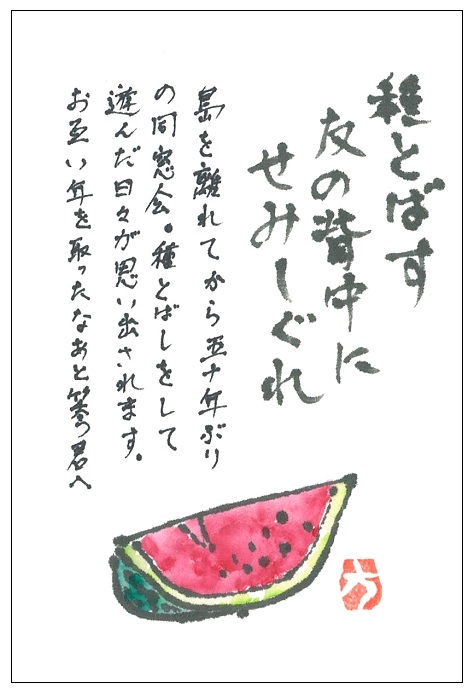 種とばす
友の背中に
せみしぐれ
島を離れてから五十年ぶり
の同窓会。種とばしをして
遊んだ日々が思い出されます。
お互い年を取ったなあと笑う君へ